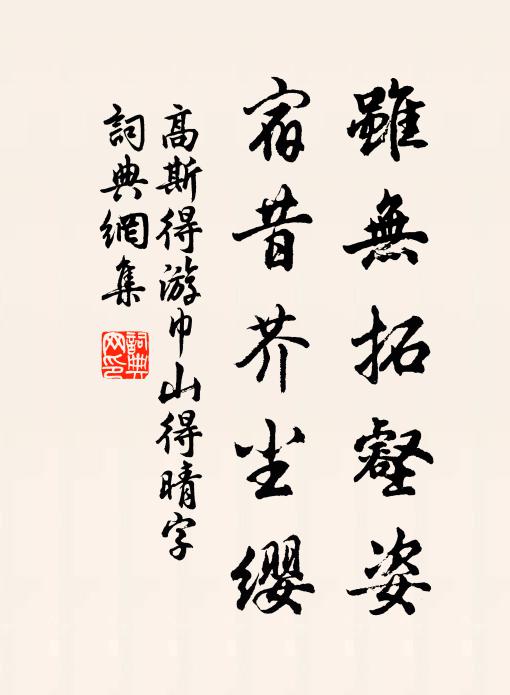 雖無拓壑姿
宿昔芥尘纓
高斯得游巾山得晴字
詞典網集
詞典网印